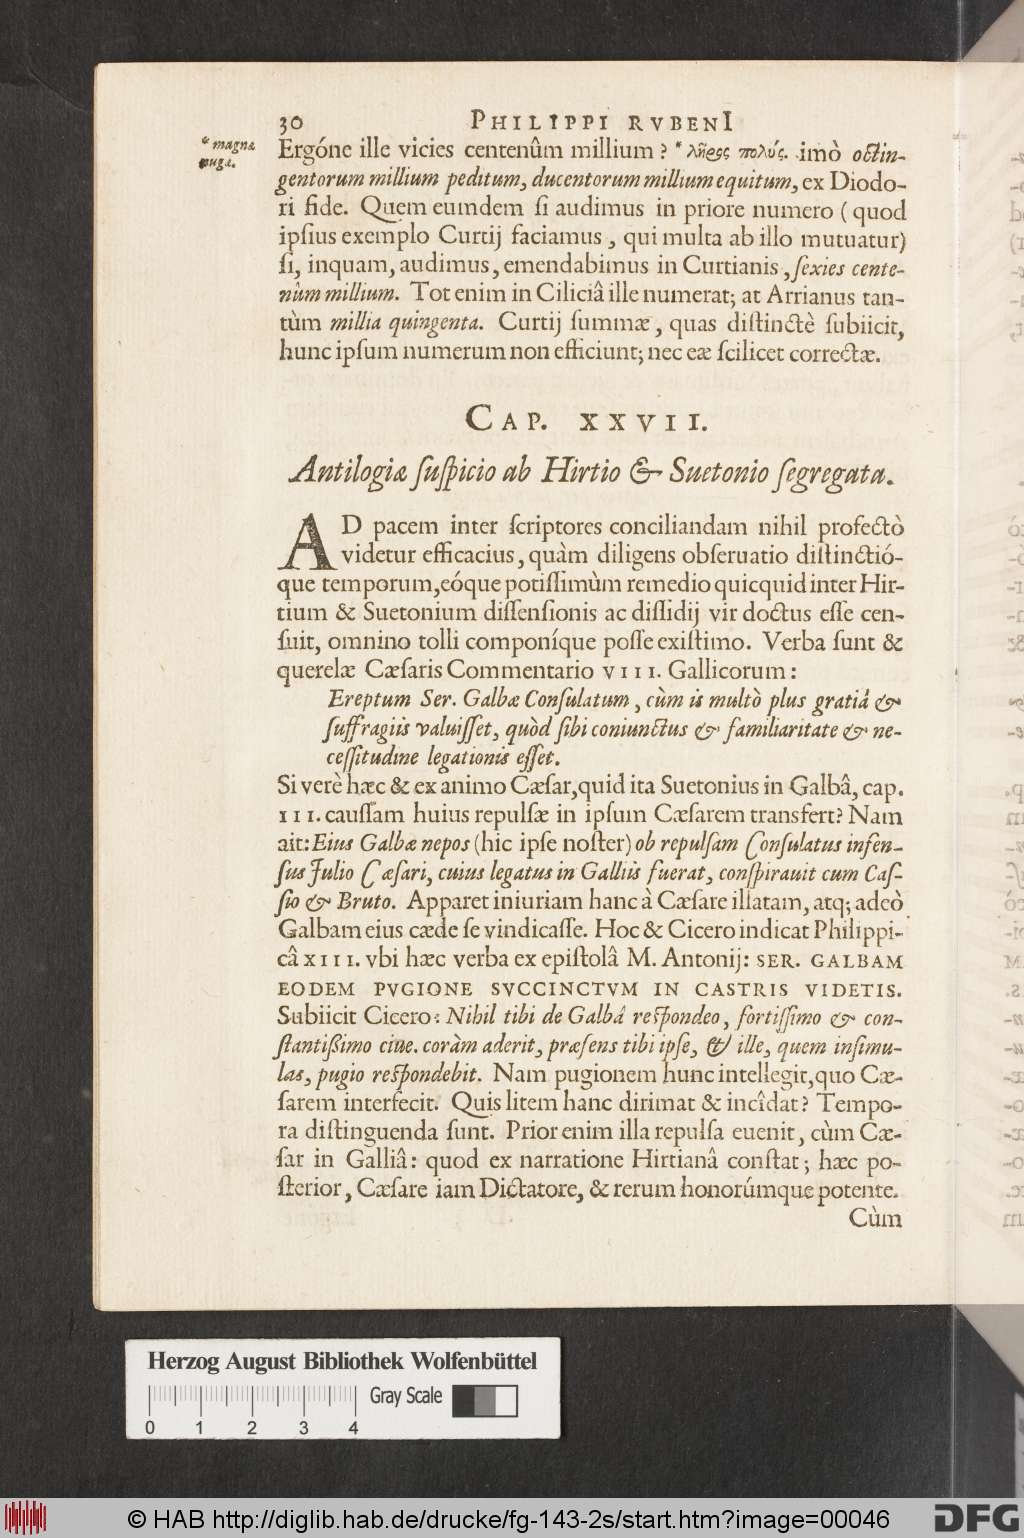 30 PHILIPPI RVBENI
* magnæ
nugæ.
Ergóne ille vicies centenûm millium? * λῆρος πολύς. imò octin-
gentorum millium peditum, ducentorum millium equitum, ex Diodo-
ri fide. Quem eumdem si audimus in priore numero (quod
ipsius exemplo Curtij faciamus, qui multa ab illo mutuatur)
si, inquam, audimus, emendabimus in Curtianis, sexies cente-
nûm millium. Tot enim in Ciliciâ ille numerat; at Arrianus tan-
tùm millia quingenta. Curtij summæ, quas distinctè subiicit,
hunc ipsum numerum non efficiunt; nec eæ scilicet correctæ.
CAP. XXVII.
Antilogiæ suspicio ab Hirtio & Suetonio segregata.
AD pacem inter scriptores conciliandam nihil profectò
videtur efficacius, quàm diligens obseruatio distinctió-
que temporum, eóque potissimùm remedio quicquid inter Hir-
tium & Suetonium dissensionis ac dissidij vir doctus esse cen-
suit, omnino tolli componíque posse existimo. Verba sunt &
querelæ Cæsaris Commentario VIII. Gallicorum:
Ereptum Ser. Galbæ Consulatum, cùm is multò plus gratiâ &
suffragiis valuisset, quòd sibi coniunctus & familiaritate & ne-
cessitudine legationis esset.
Si verè hæc & ex animo Cæsar, quid ita Suetonius in Galbâ, cap.
III. caussam huius repulsæ in ipsum Cæsarem transfert? Nam
ait: Eius Galbæ nepos (hic ipse noster) ob repulsam Consulatus infen-
sus Julio Cæsari, cuius legatus in Galliis fuerat, conspirauit cum Cas-
sio & Bruto. Apparet iniuriam hanc à Cæsare illatam, atq; adeò
Galbam eius cæde se vindicasse. Hoc & Cicero indicat Philippi-
câ XIII. vbi hæc verba ex epistolâ M. Antonij: SER. GALBAM
EODEM PVGIONE SVCCINCTVM IN CASTRIS VIDETIS.
Subiicit Cicero: Nihil tibi de Galbâ respondeo, fortissimo & con-
stantißimo ciue. coràm aderit, præsens tibi ipse, & ille, quem insimu-
las, pugio respondebit. Nam pugionem hunc intellegit, quo Cæ-
sarem interfecit. Quis litem hanc dirimat & incîdat? Tempo-
ra distinguenda sunt. Prior enim illa repulsa euenit, cùm Cæ-
sar in Galliâ: quod ex narratione Hirtianâ constat; hæc po-
sterior, Cæsare iam Dictatore, & rerum honorúmque potente.
Cùm
Herzog August Bibliothek Wolfenbüttel
Gray Scale
0 1 2 3 4
© HAB http://diglib.hab.de/drucke/fg-143-2s/start.htm?image=00046
DFG